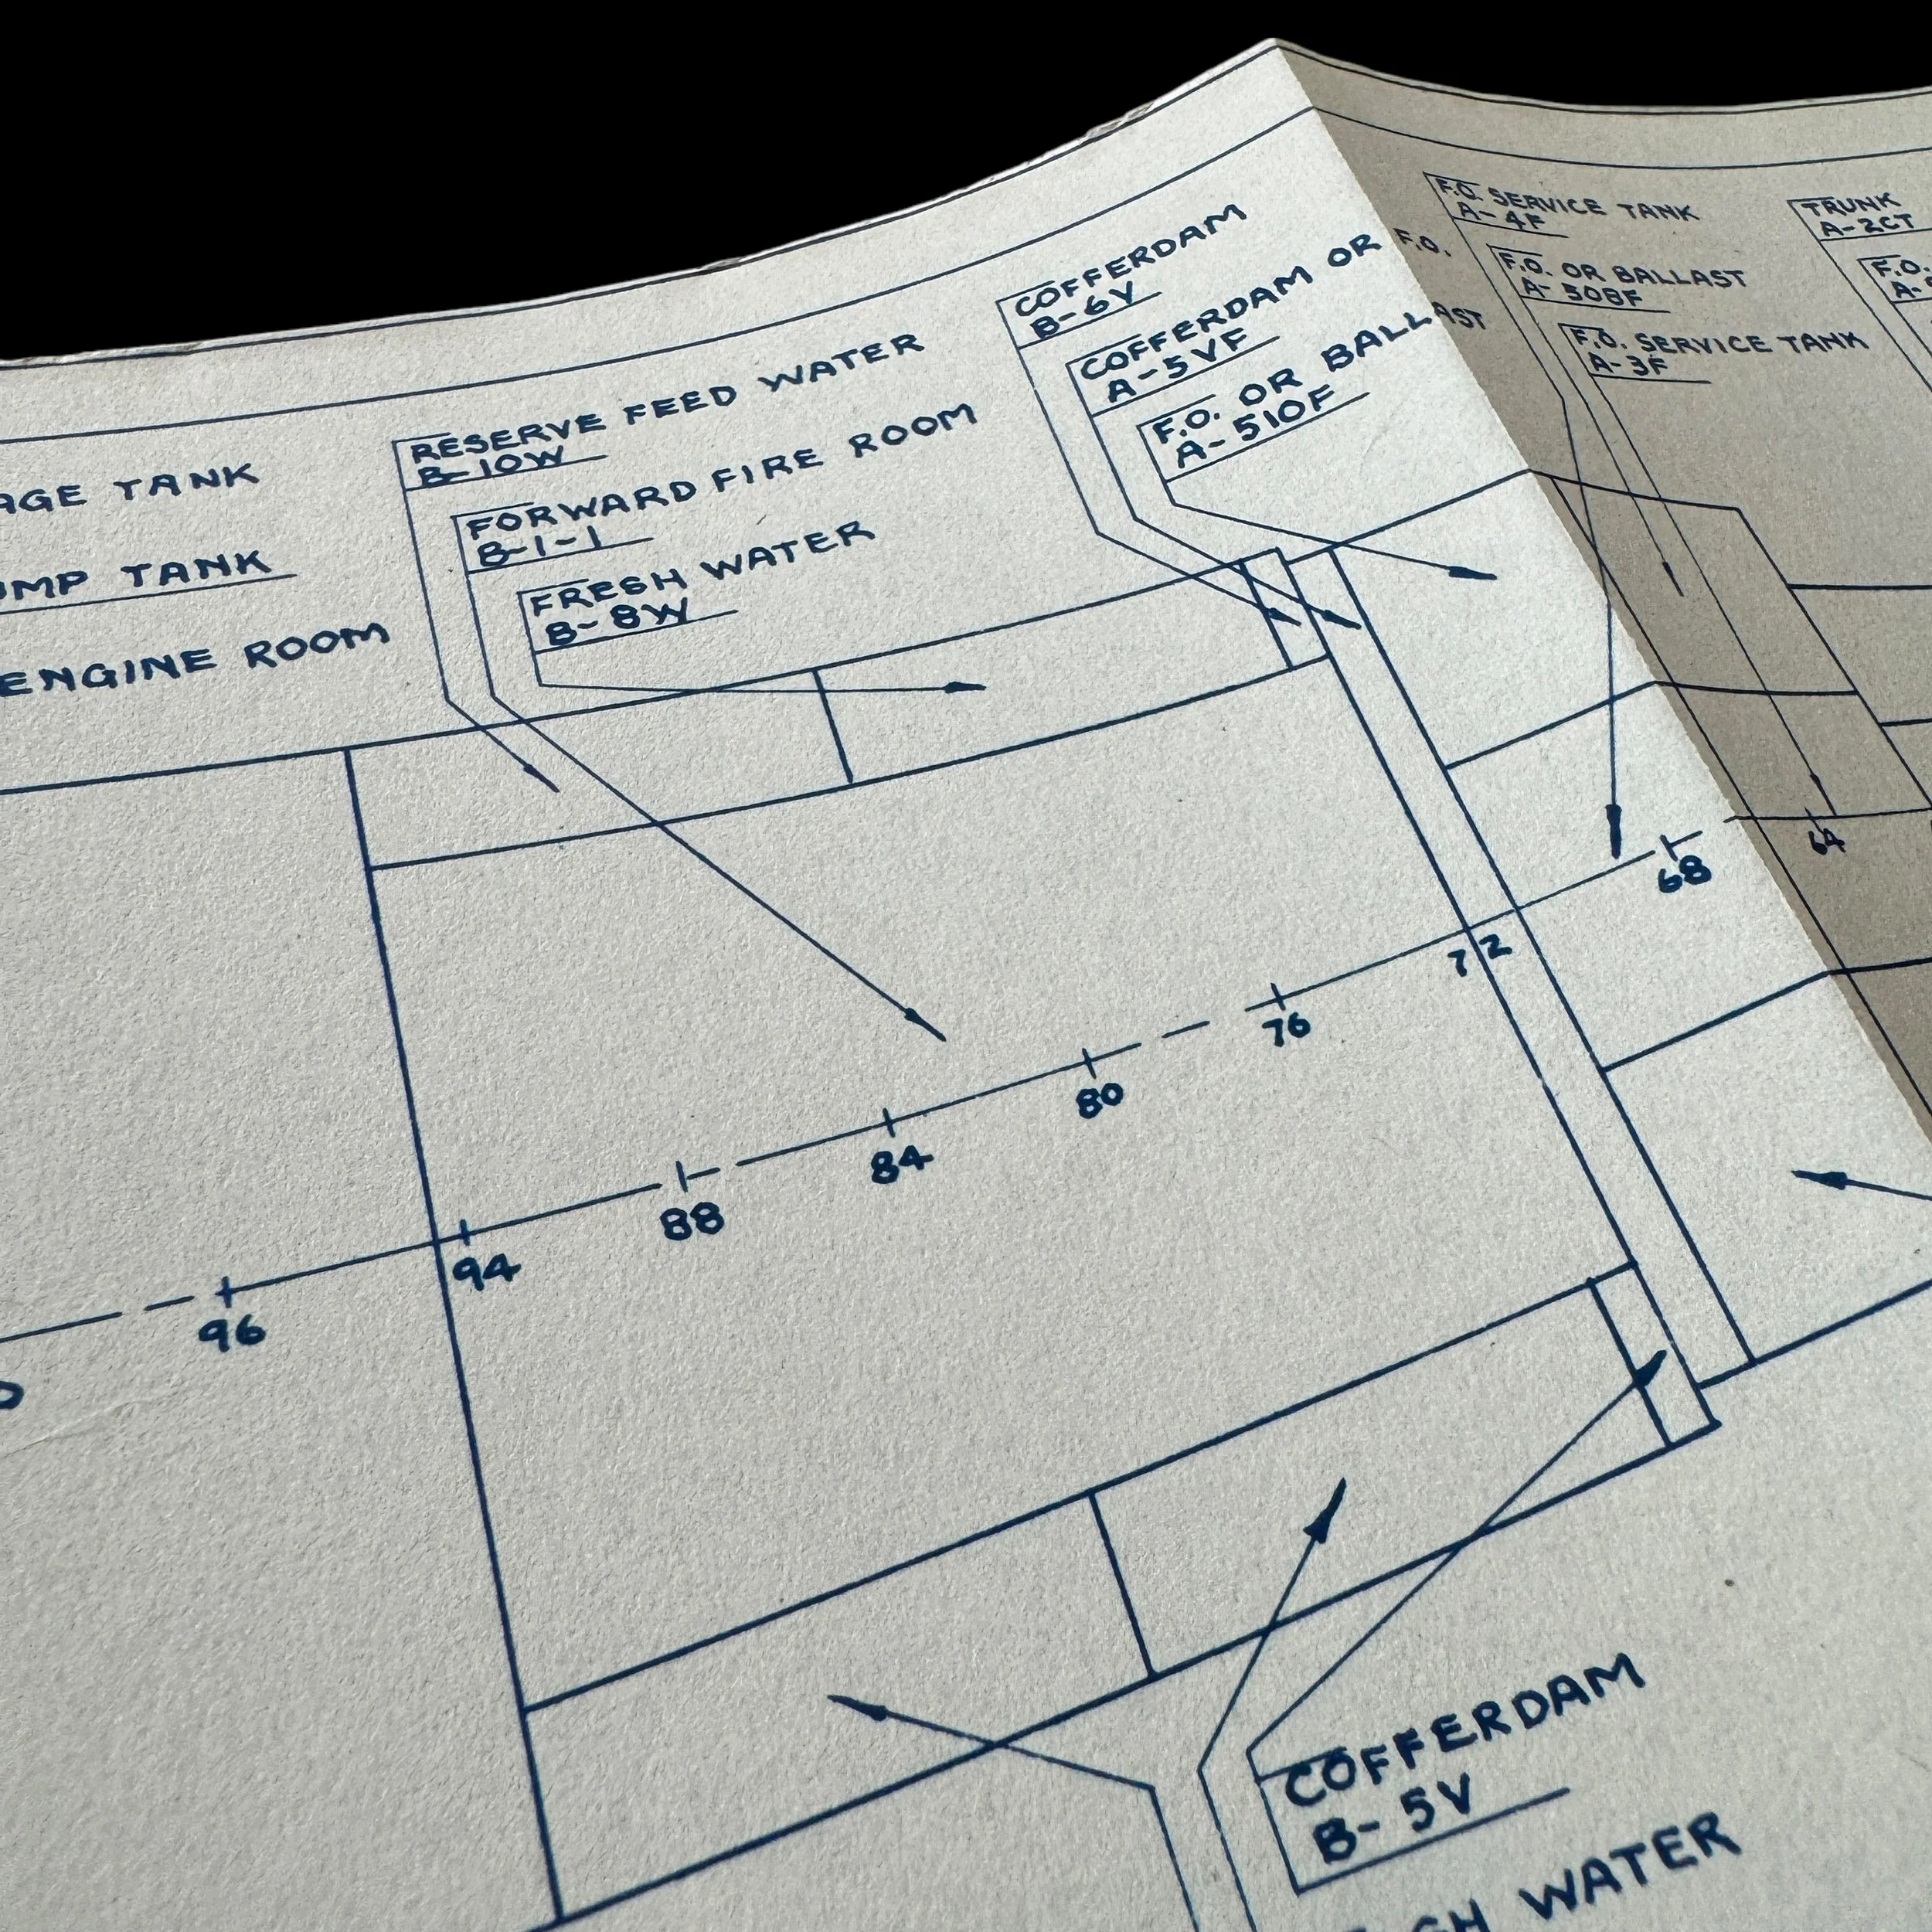 AGE TANK
UMP TANK
ENGINE ROOM
RESERVE FEED WATER
B-10W
FORWARD FIRE ROOM
B-1-1
FRESH WATER
B-8W
COFFERDAM
B-6V
COFFERDAM OR F.O.
A-5VF
F.O. OR BALLAST
A-510F
F.O. SERVICE TANK
A-4F
F.O. OR BALLAST
A-508F
F.O. SERVICE TANK
A-3F
TRUNK
A-2CT
F.O.
A-
96
94
88
84
80
76
72
68
64
COFFERDAM
B-5V
SH WATER